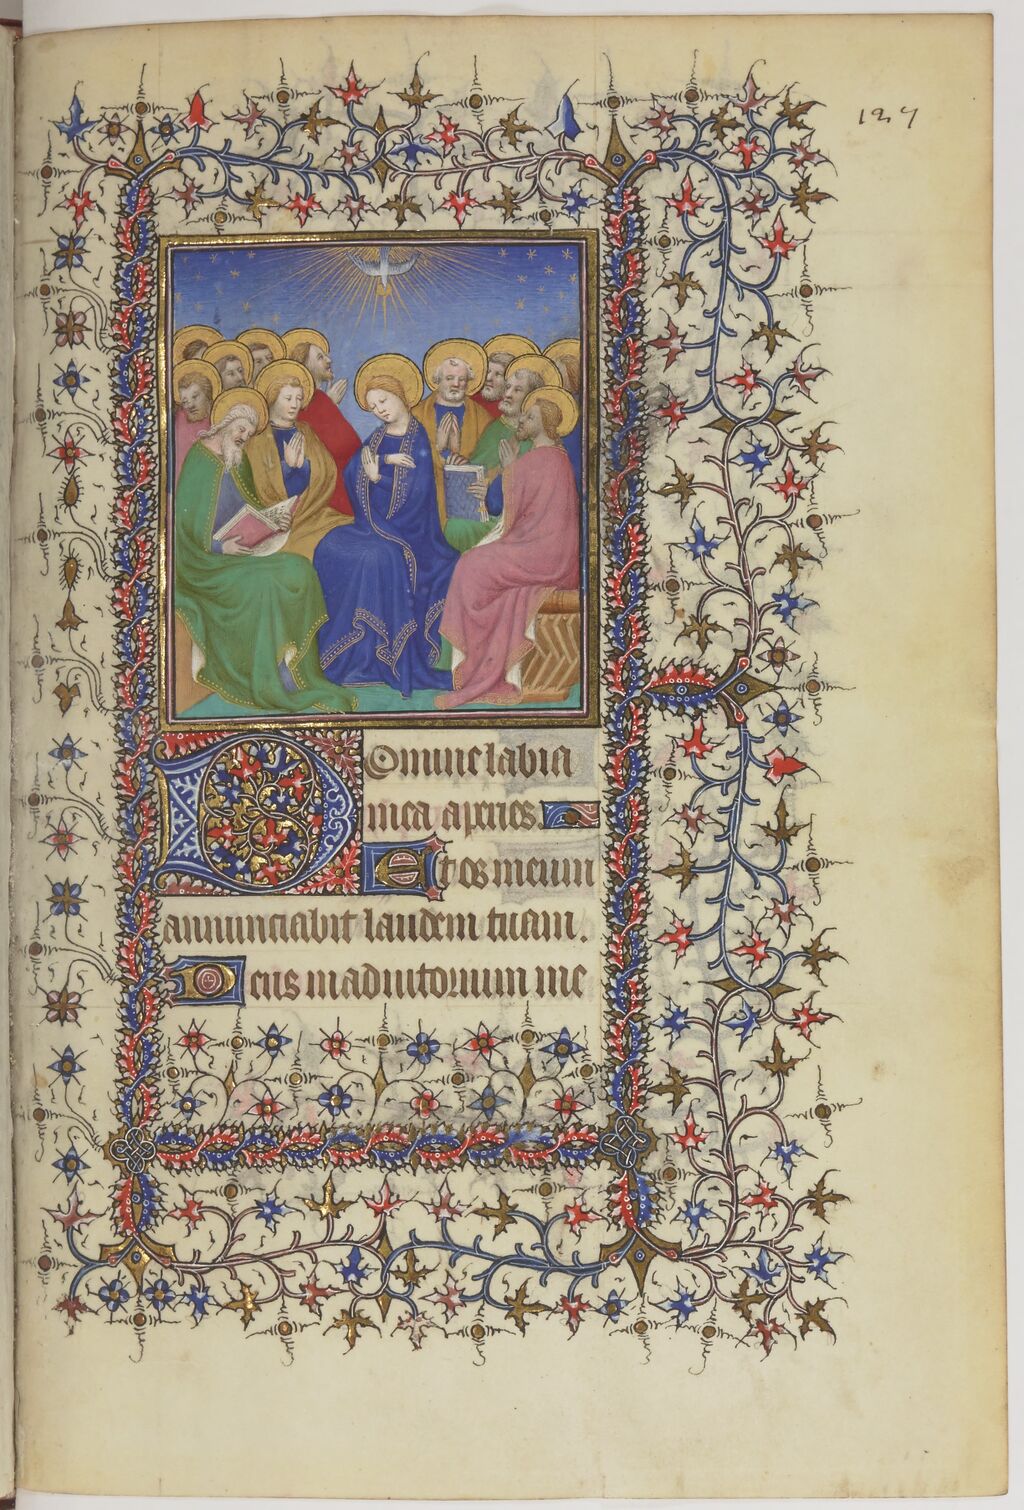 127
Domine labia
mea aperies.
Et os meum
annunciabit laudem tuam.
Deus in adiutorium me